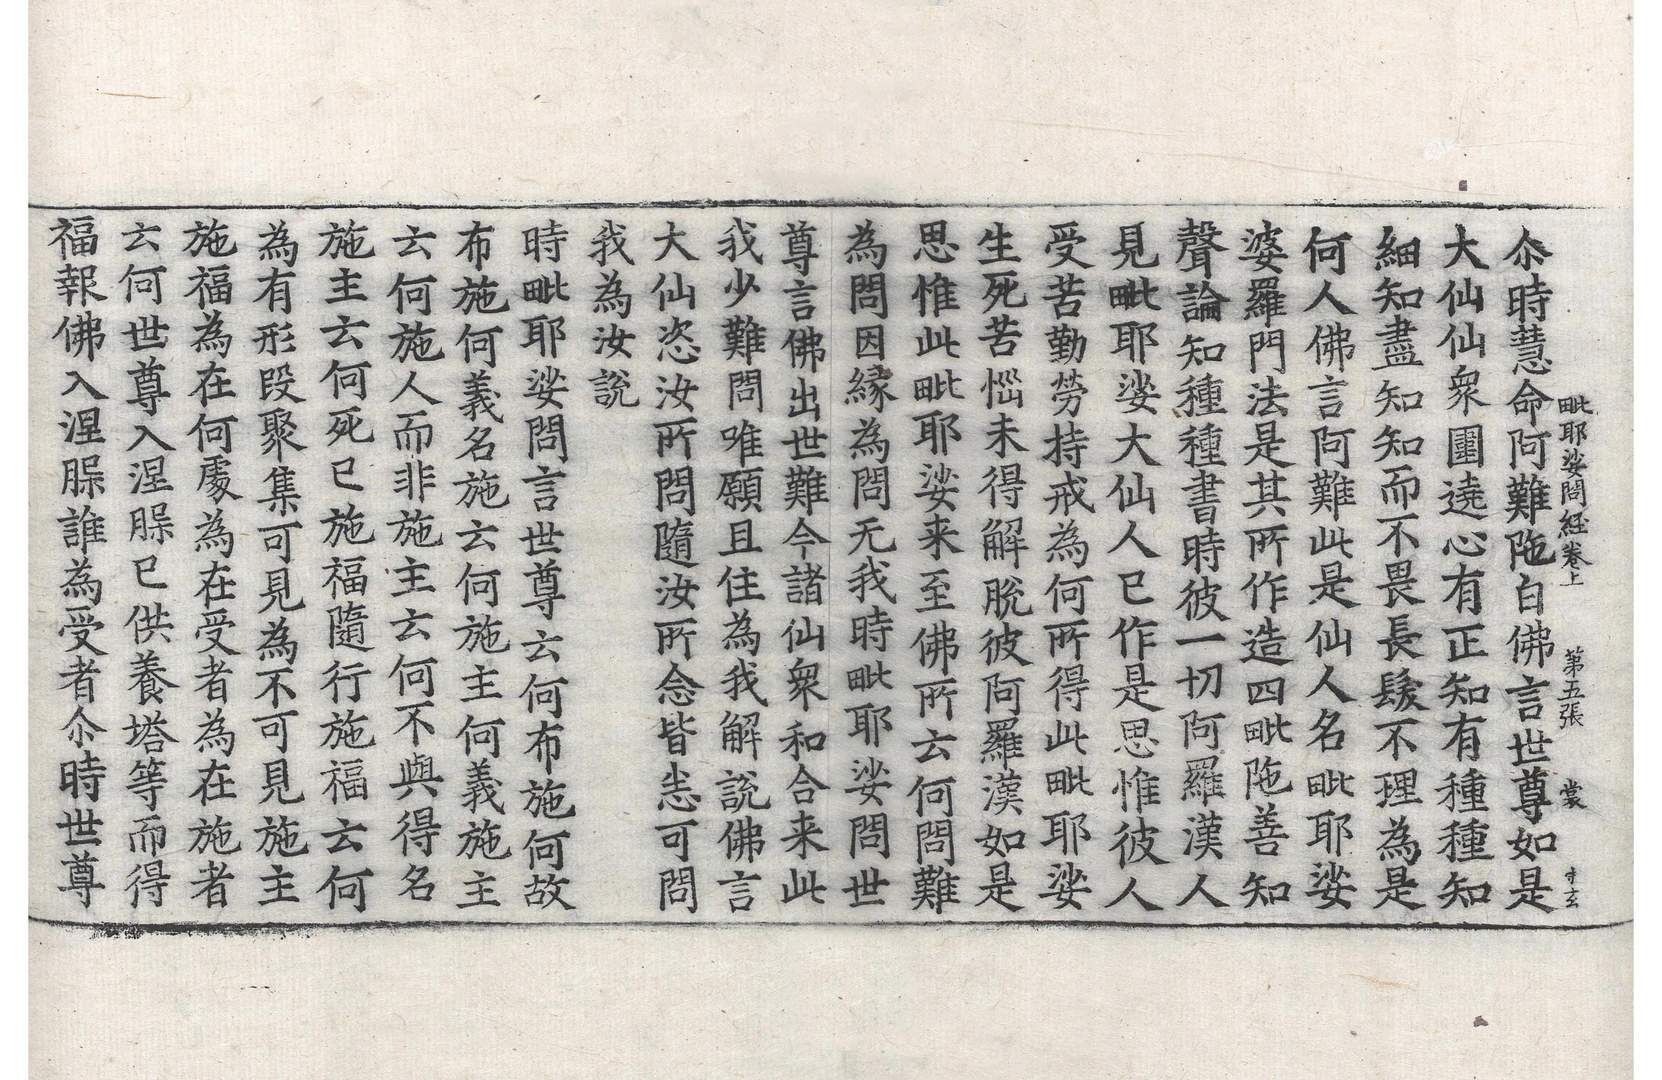 毗耶娑問経卷上 第五張 裳 才玄
尒時慧命阿難陁白佛言世尊如是
大仙仙衆圍遶心有正知有種種知
細知盡知知而不畏長髮不理為是
何人佛言阿難此是仙人名毗耶娑
婆羅門法是其所作造四毗陁善知
聲論知種種書時彼一切阿羅漢人
見毗耶娑大仙人已作是思惟彼人
受苦勤勞持戒為何所得此毗耶娑
生死苦惱未得解脫彼阿羅漢如是
思惟此毗耶娑来至佛所云何問難
為問因緣為問无我時毗耶娑問世
尊言佛出世難今諸仙衆和合来此
我少難問唯願且住為我解說佛言
大仙恣汝所問隨汝所念皆恣可問
我為汝說
時毗耶娑問言世尊云何布施何故
布施何義名施云何施主何義施主
云何施人而非施主云何不與得名
施主云何死已施福隨行施福云何
為有形段聚集可見為不可見施主
施福為在何處為在受者為在施者
云何世尊入涅槃已供養塔等而得
福報佛入涅槃誰為受者尒時世尊